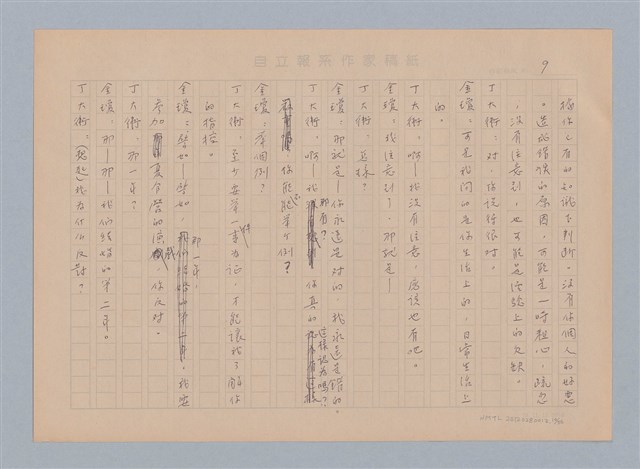 自立報系作家稿紙
9
據你已有的知識下判斷。沒有你個人的好惡
。造成錯誤的原因，可能是一時粗心，疏忽
，沒有注意到，也可能是經驗上的欠缺。
丁大衛：對，你說得很對。
金瓊：可是我問的是你生活上的，日常生活上
的。
丁大衛：啊—我沒有注意，應該也有吧。
金瓊：我注意到了，那就是—
丁大衛：怎樣？
金瓊：那就是—你永遠是對的，我永遠是錯的。
丁大衛：啊—我那有？你真的這樣認為嗎？
你能不能舉個例？
金瓊：舉個例？
丁大衛：至少要舉一事件為証，才能讓我了解你
的指控。
金瓊：譬如—譬如，那一年，我要
參加夏令營的演戲，你反對。
丁大衛：那一年？
金瓊：那—那—我們結婚的第二年。
丁大衛：（想起）我為什么反對？